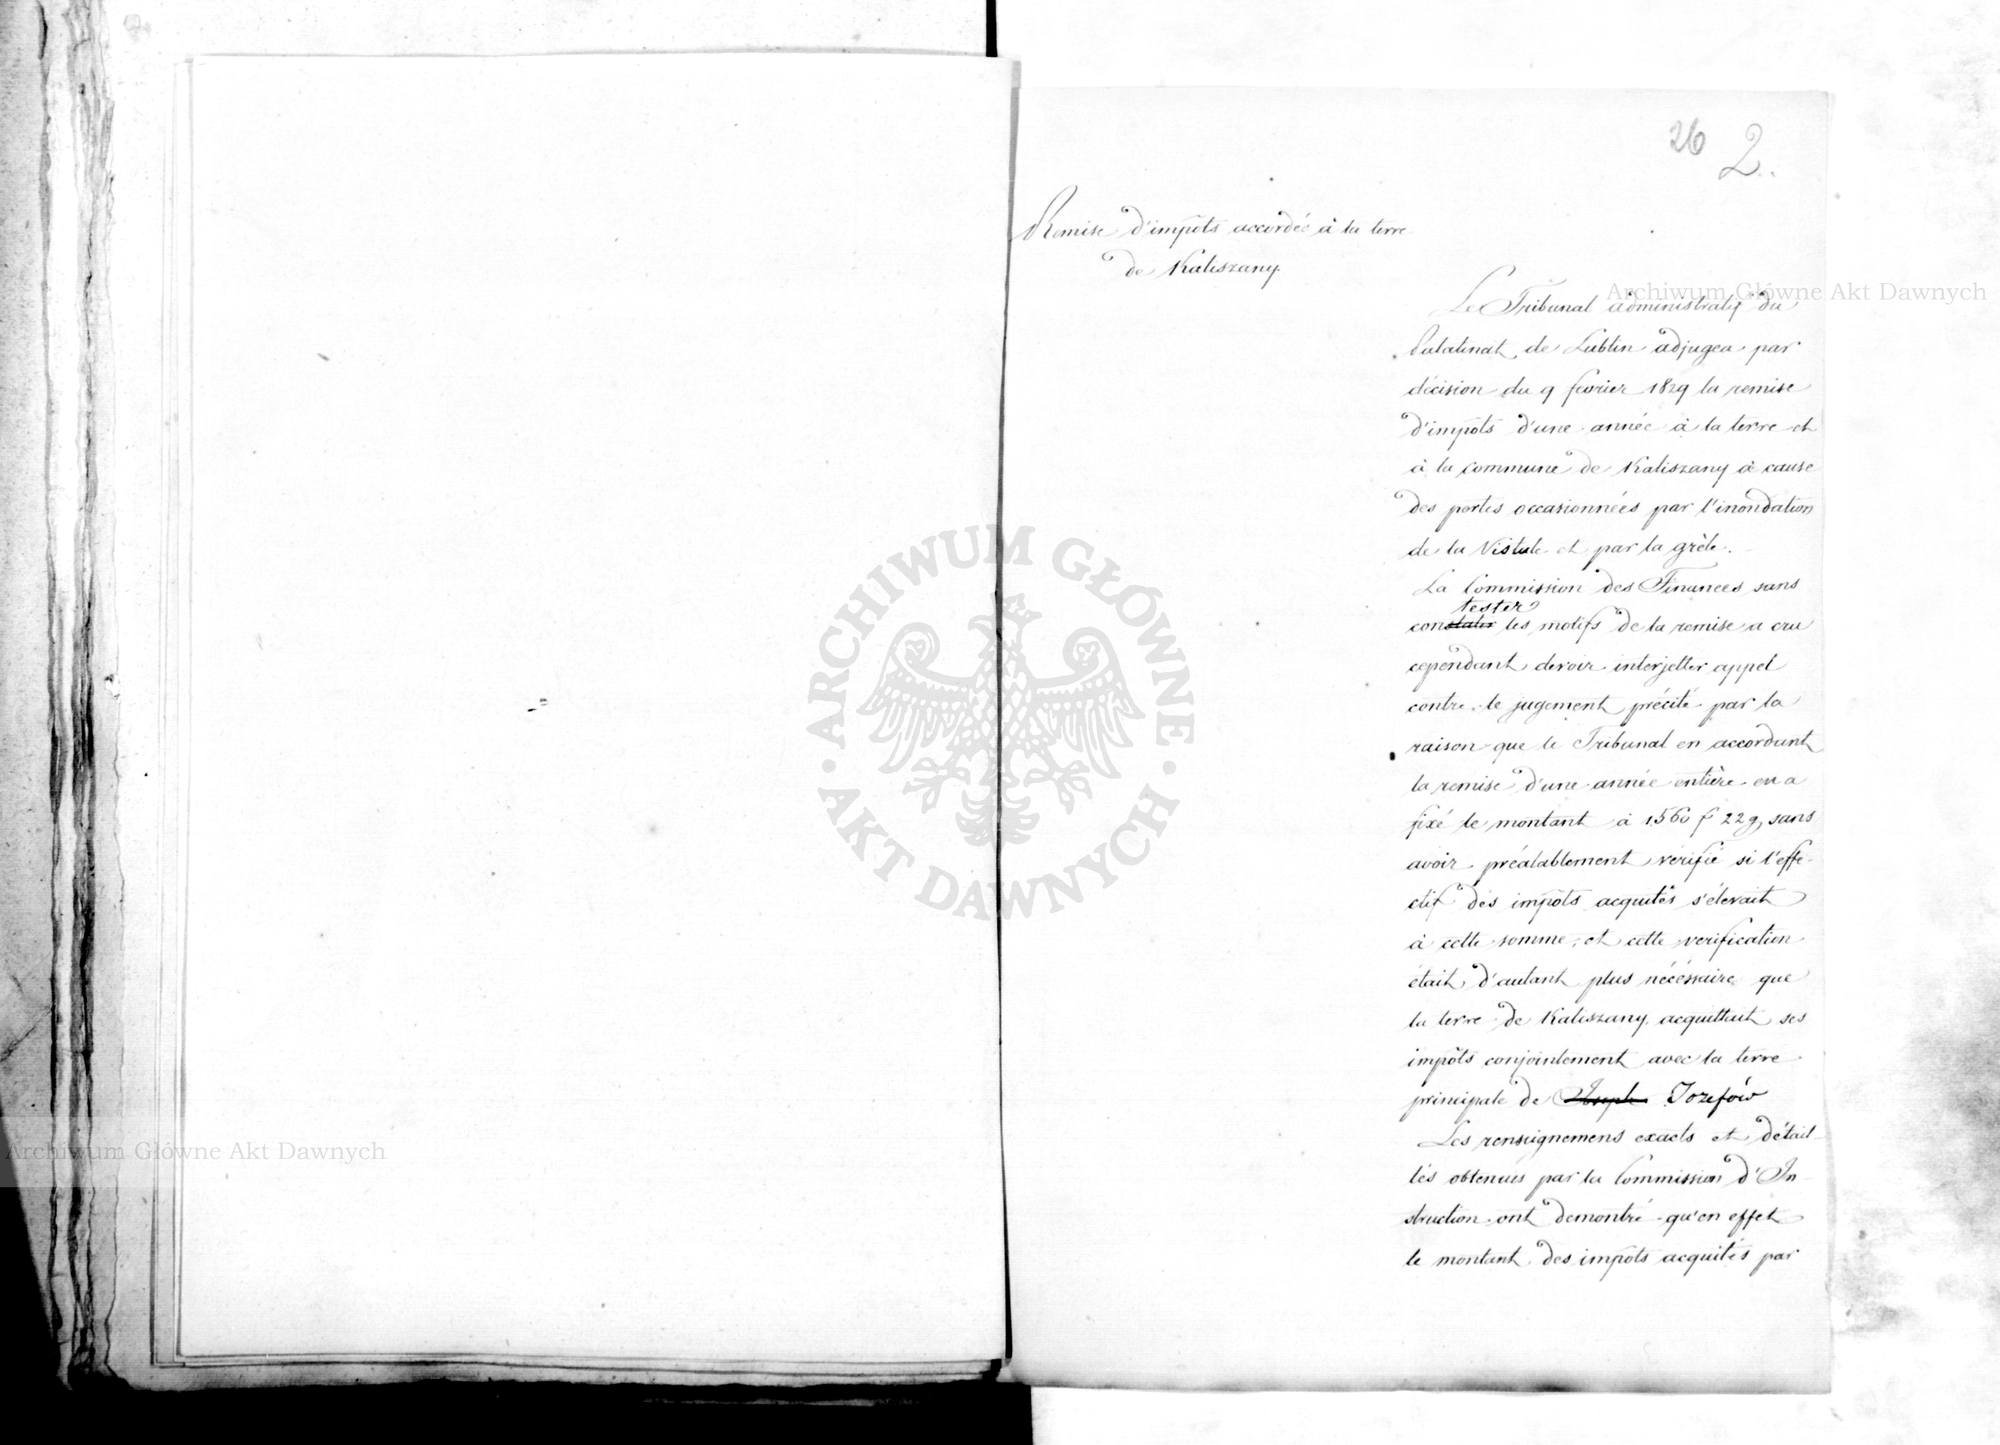 26 2.
Remise d'impôts accordée à la terre
de Kaliszany.
Le Tribunal administratif du
Palatinat de Lublin adjugea par
décision du 9 fevrier 1829 la remise
d'impôts d'une année à la terre et
à la commune de Kaliszany à cause
des pertes occasionnées par l'inondation
de la Vistule et par la grèle.
La Commission des Finances sans
tester
constater les motifs de la remise a cru
cependant devoir interjetter appel
contre le jugement précité par la
raison que le Tribunal en accordant
la remise d'une année entière en a
fixé le montant à 1560 f 22 g, sans
avoir préalablement vérifié si l'effe-
ctif des impôts acquités s'élevait
à cette somme; et cette verification
était d'autant plus nécéssaire que
la terre de Kaliszany acquittait ses
impôts conjointement avec la terre
principale de Joseph Jozefów
Les renseignemens exacts et détail-
lés obtenus par la Commission d'In-
struction ont demontré qu'en effet
le montant des impôts acquités par
Archiwum Główne Akt Dawnych
Archiwum Główne Akt Dawnych
ARCHIWUM GŁÓWNE
AKT DAWNYCH